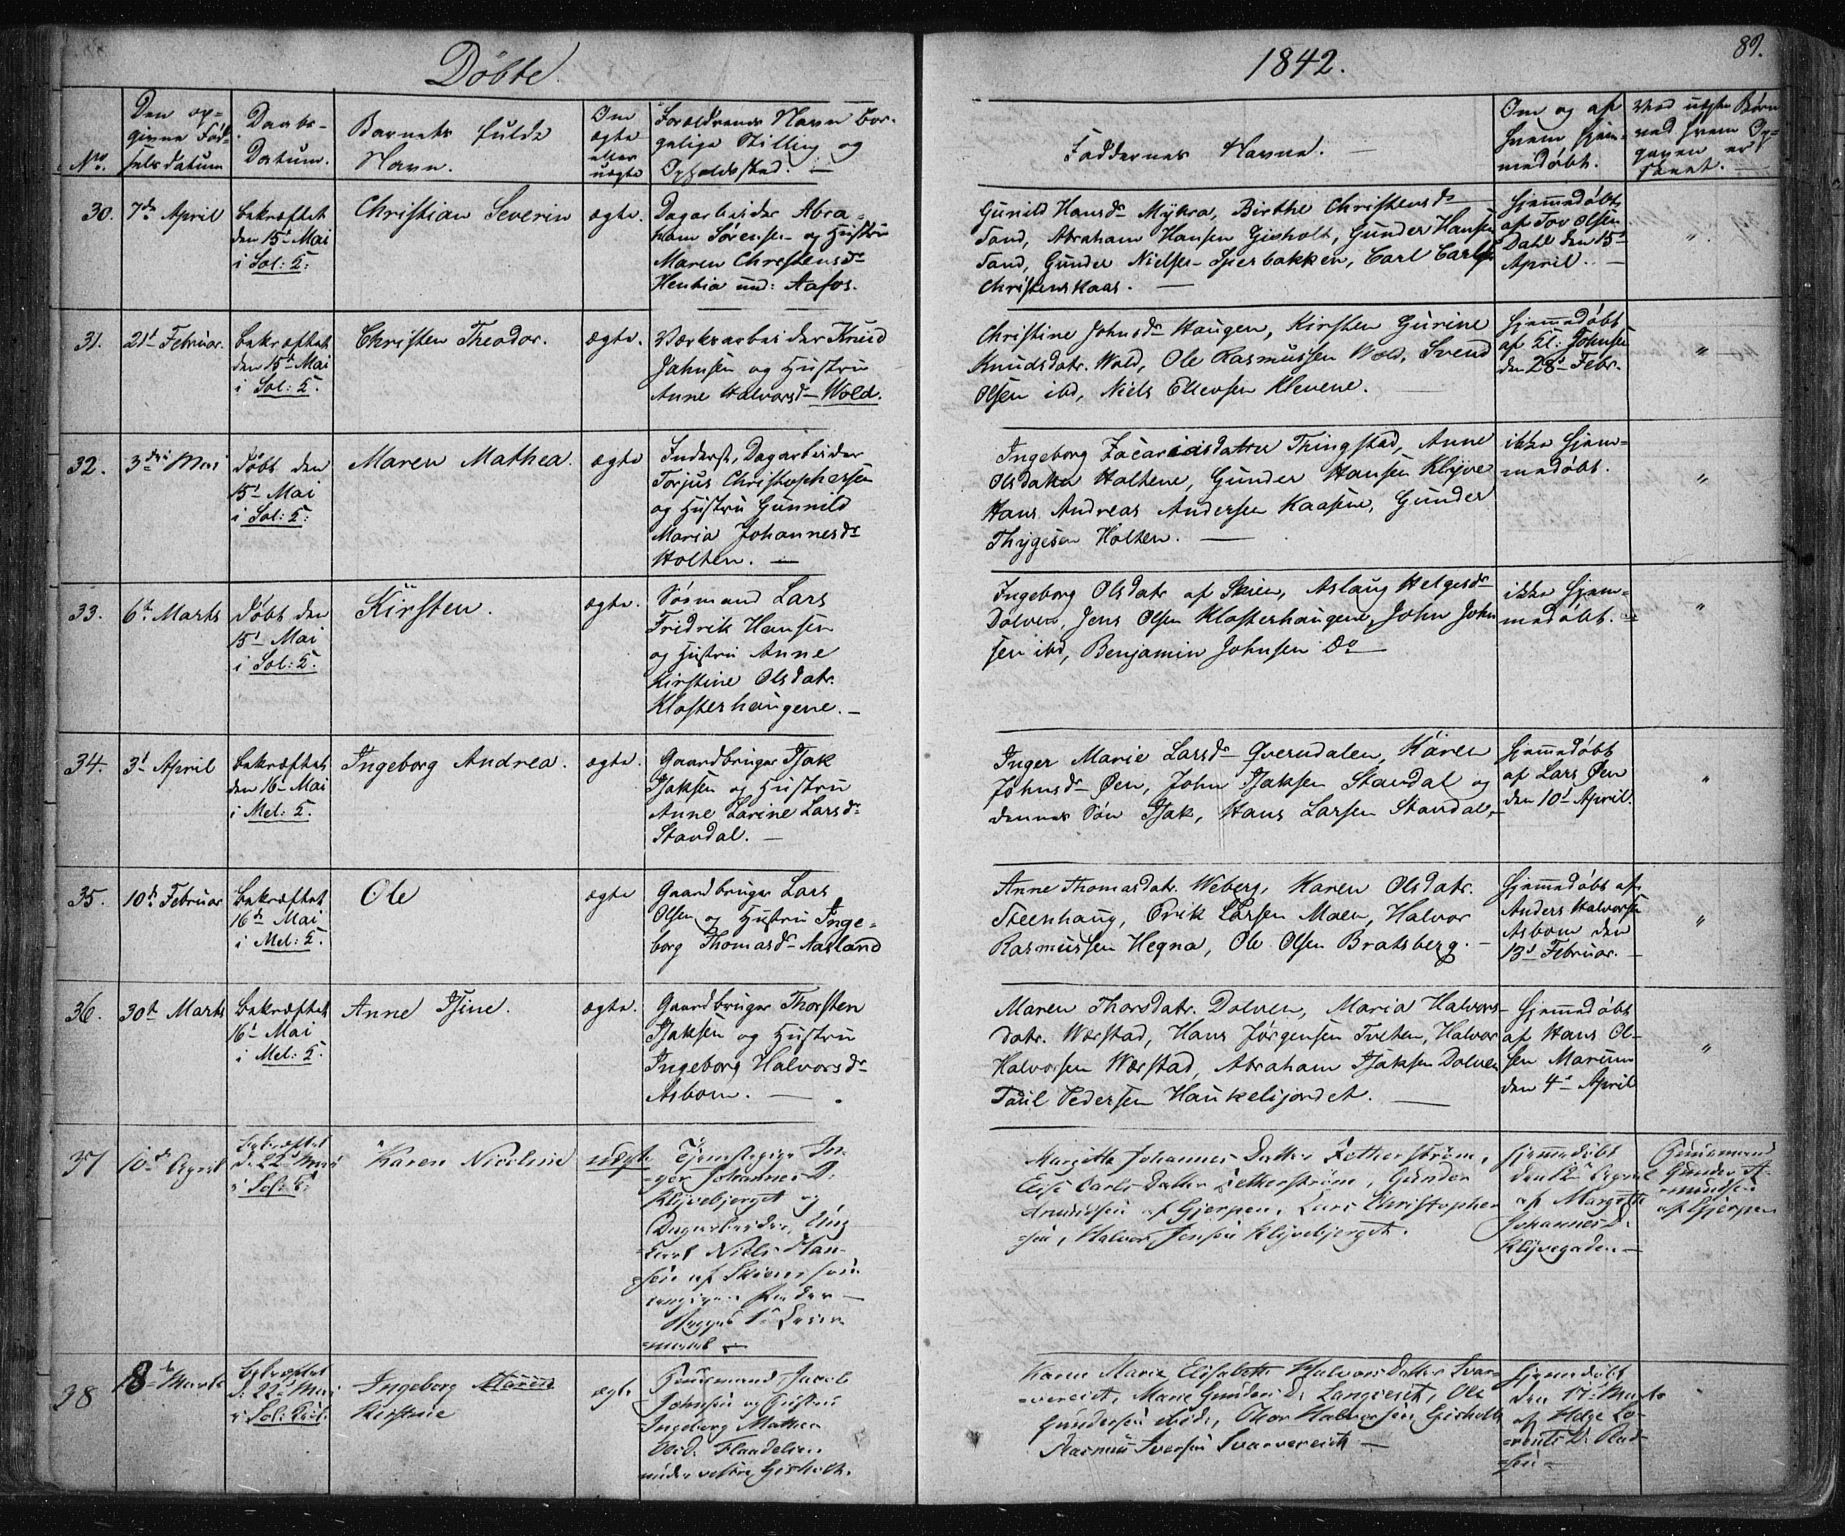 Døbte.
1842.
89.
No.
Den op-
givne Fød-
selsdatum
Daabs-
Datum.
Barnets fulde
Navn.
Om
ægte
eller
uægte
Forældrenes Navn bor-
gelige Stilling og
Opholdssted.
Faddernes Navne.
Om og af
hvem hjem-
medøbt.
Ved uægte Børn
ved hvem Op-
gaven er
skeet.
30.
7de April
bekræftet
den 15de Mai
i Sol: K.
Christian Severin
ægte.
Dagarbeider Abra-
ham Sørensen og Hustru
Maren Christensdr
Hentia und: Aafos.
Gunild Hansdr Mykra, Birthe Christensdr
Sand, Abraham Hansen Gisholt, Gunder Hansen
Sand, Gunder Nielsen Bakken, Carl Carlsen
Christenskaas.
Hjemmedøbt
af Tov Olsen
Dahl den 15de
April.
"
31.
21de Februar.
bekræftet
den 15de Mai
i Sol: K.
Christen Theodor.
ægte.
Værksarbeider Knud
Johnsen og Hustru
Anne Halvorsdr Wold.
Christine Johnsdr Haugen, Kirsten Gurine
Knudsdatr. Wold, Ole Rasmussen Wold, Svend
Olsen ibd, Niels Ellevsen Klevene.
hjemmedøbt
af Kl: Johnsen
den 28de Febr.
"
32.
3die Mai
døbt den
15de Mai
i Sol: K.
Maren Mathea.
ægte
Inderst, Dagarbeider
Torjus Christophersen
og Hustru Gunnild
Maria Johannesdr
Holten.
Ingeborg Zacariasdatter Thingstad, Anne
Olsdatter Holtene, Gunder Hansen Klyve
Hans Andreas Andersen Kaasene, Gunder
Thygesen Holten.
ikke hjem-
medøbt.
"
33.
6te Marts
døbt den
15de Mai
i Sol: K.
Kirsten.
ægte.
Sømand Lars
Fridrik Hansen
og Hustru Anne
Kirstine Olsdatr.
Klosterhaugene.
Ingeborg Olsdatr af Skien, Aslaug Helgesdr
Dolven, Jens Olsen Klosterhaugene, John John-
sen ibd, Benjamin Johnsen Do
ikke hjem-
medøbt.
"
34.
3die April
bekræftet
den 16de Mai
i Mel: K.
Ingeborg Andrea.
ægte.
Gaardbruger Isak
Isaksen og Hustru
Anne Larine Larsdr
Standal.
Inger Marie Larsdr Qverndalen, Karen
Johnsdr Øen, John Isaksen Standal og
dennes Søn Isak, Hans Larsen Standal,
hjemmedøbt
af Lars Øen
den 10de April.
"
35.
10de Februar
bekræftet
16de Mai
i Mel: K.
Ole
ægte
Gaardbruger Lars
Olsen og Hustru Inge-
borg Thomasdr Aasland
Anne Thomasdatr. Weberg, Karen Olsdatr.
Steenhaug, Erik Larsen Moen, Halvor
Rasmussen Hegna, Ole Olsen Bratsberg.
hjemmedøbt af
Anders Halvorsen
Asbom den
13de Februar.
"
36.
30te Marts
bekræftet
16de Mai
i Mel: K.
Anne Isine.
ægte.
Gaardbruger Thorsten
Isaksen og Hustru
Ingeborg Halvorsdr
Asbom.
Maren Thorsdatr. Dolven, Maria Halvors-
datr. Wærstad, Hans Jørgensen Tveten, Halvor
Halvorsen Wærstad, Abraham Isaksen Dolven
Poul Pedersen Haukelisjordet.
hjemmedøbt
af Hans Ol-
sen Marum
den 4de April
"
37
10de April
bekræftet
d. 22de Mai
i Sol: K.
Karen Nicoline
uægte
Tjenestepige In-
ger Johannes D.
Klyvebjerget og
Dagarbeider, Ung-
karl Niels Han-
sen af Skien
Margithe Johannes Datter Fetherstrøm,
Elise Carls Datter Fetherstrøm, Gunder
Amundsen af Gjerpen, Lars Christopher-
sen, Halvor Jensen Klyvebjerget.
hjemmedøbt
af Margithe
Johannes D.
Klyvegaden
Huusmand
Gunder A-
mundsen
af Gjerpen
38
8de Marts
bekræftet
d. 22de Mai
i Sol: K.
Ingeborg Maren
Kirstine
ægte
Huusmand Jacob
Johnsen og Hustru
Ingeborg Mathea
Gisholt.
Karen Marie Elisabeth Halvors Datter Svar-
vereiet, Marie Gunders D. Langereiet, Ole
Gundersen ibid., Halvorsen Gisholt
Rasmus Iversen Svarvereiet
hjemmedøbt
den 17de Marts
af Helge Lo-
rents D.